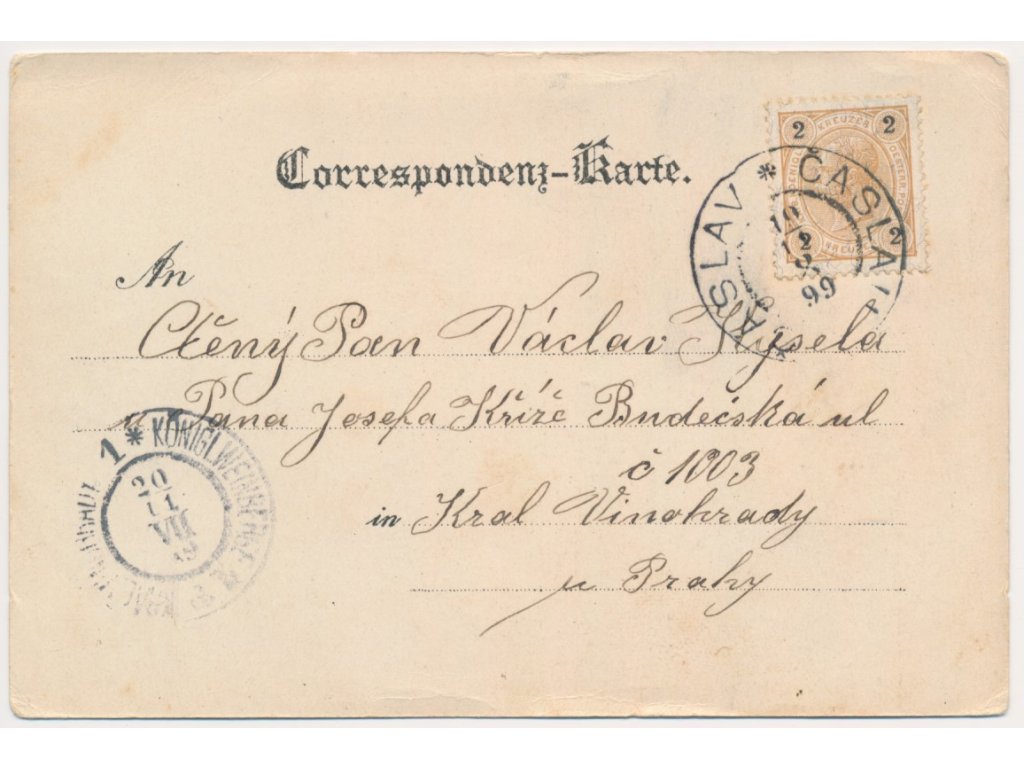 Correspondenz-Karte.
2 KREUZER 2
2 KREUZER 2
ČASLAV * ČASLAV *
99
An
Ctěný Pan Václav Kysela
u Pana Josefa Kříže Budečská ul
č 1003
in Král Vinohrady
u Prahy
1 * KÖNIGL. WEINBERGE
20
VII